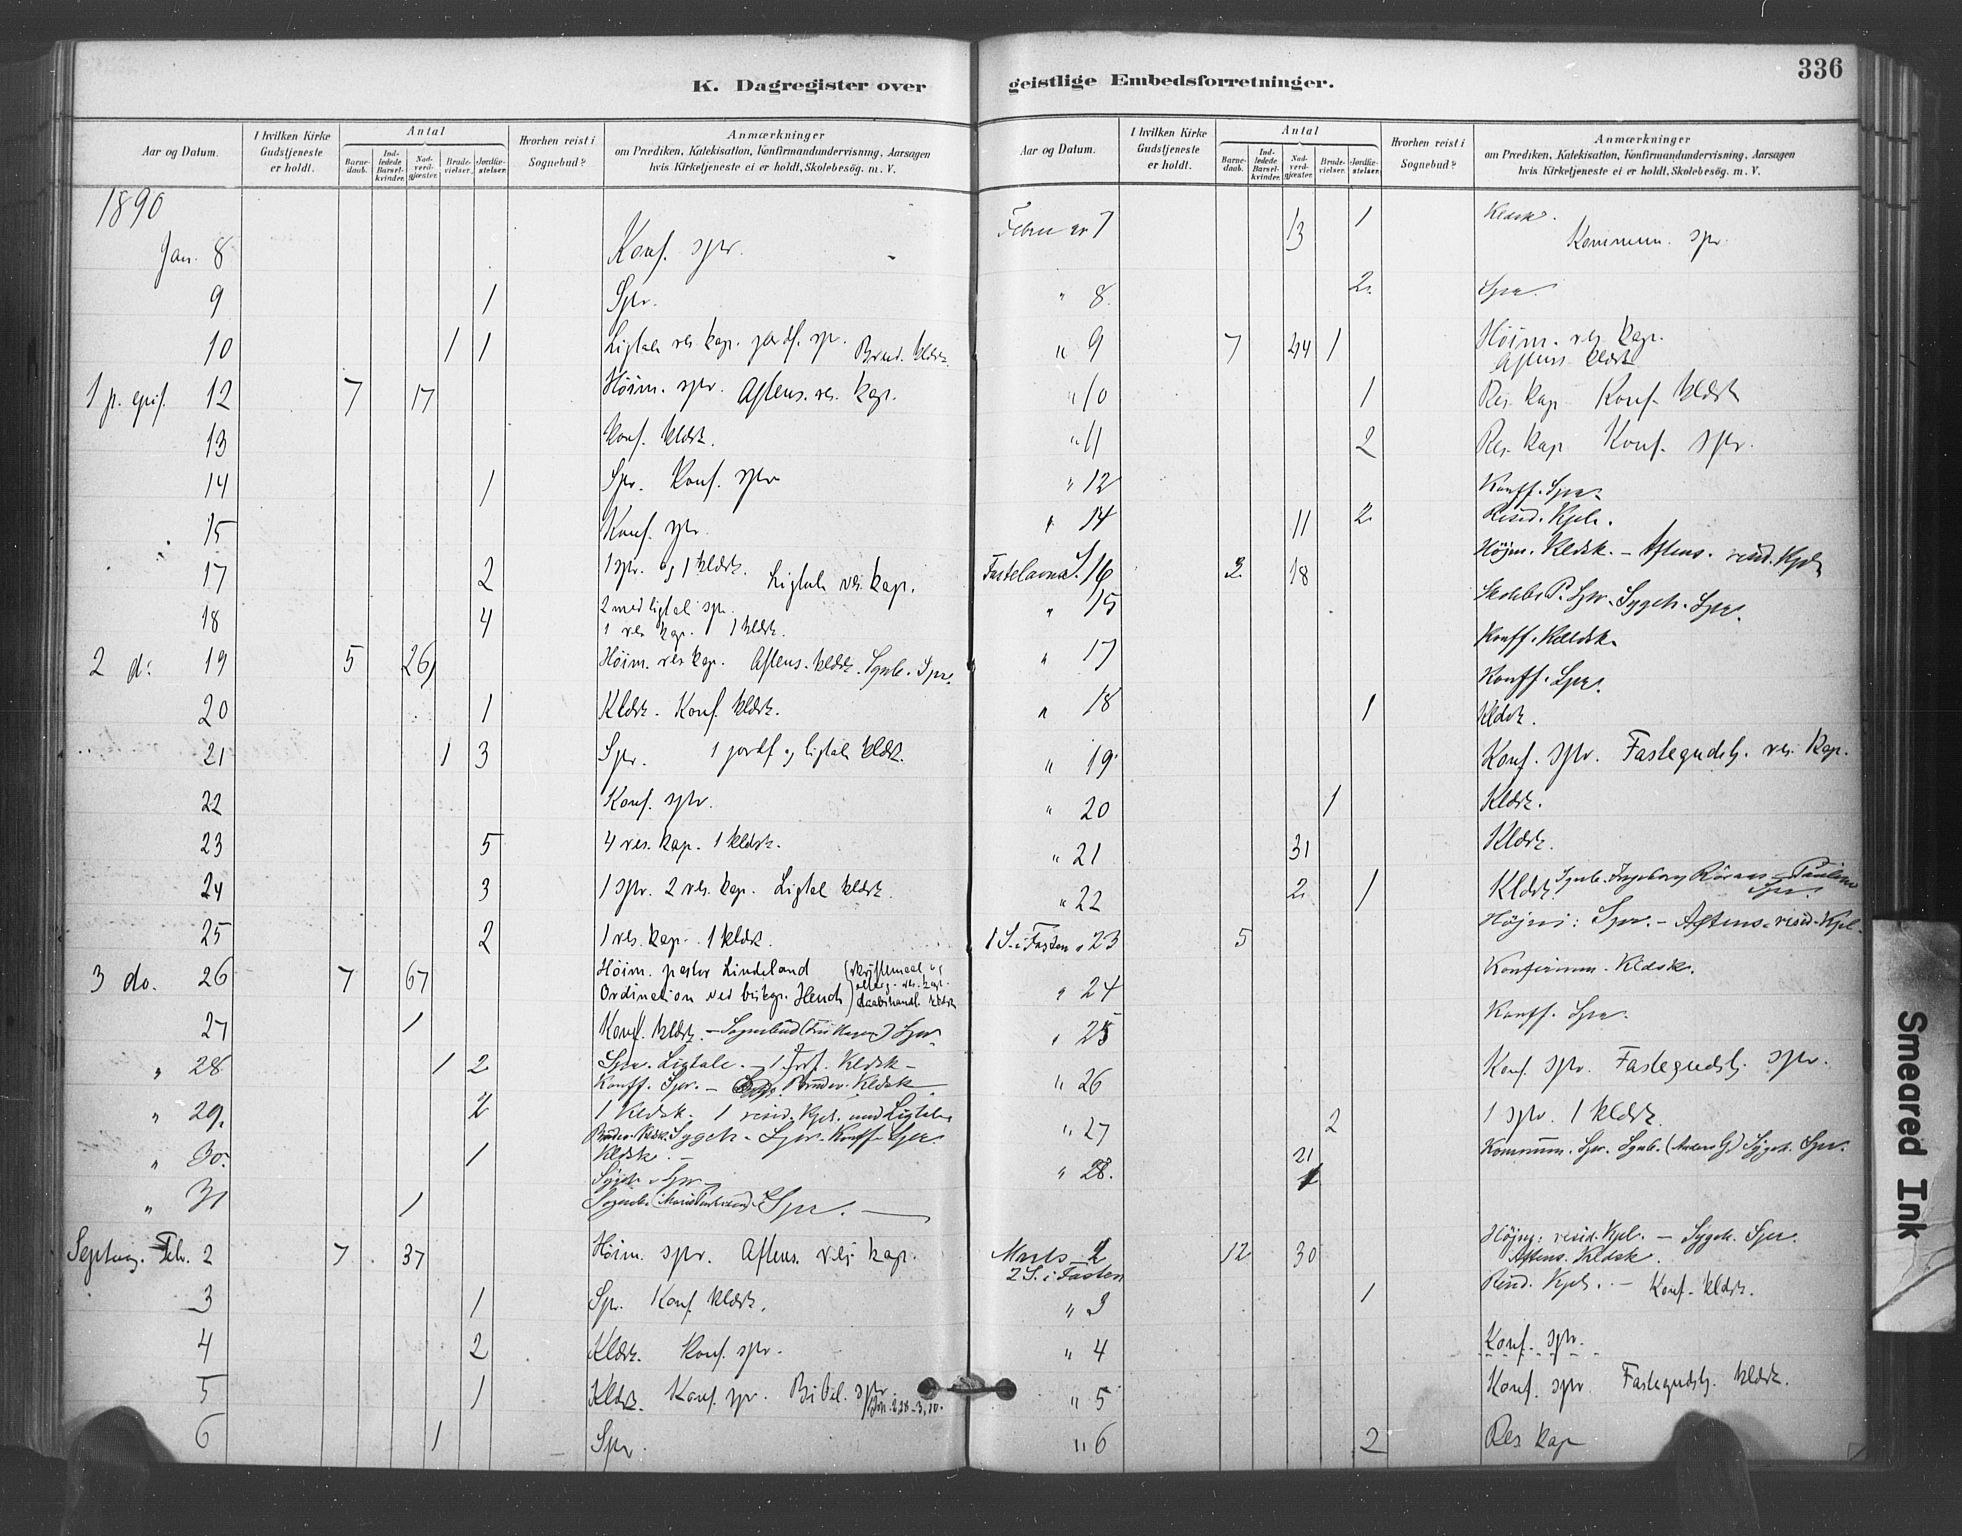 K. Dagregister over
Aar og Datum.
I hvilken Kirke Gudstjeneste er holdt.
Antal
Barnedaab.
Indledede Barselkvinder.
Nadverdgjæster.
Brudevielser.
Jordfæstelser.
Hvorhen reist i Sognebud?
Anmærkninger
om Prædiken, Katekisation, Konfirmandundervisning, Aarsagen
hvis Kirketjeneste ei er holdt, Skolebesøg. m. V.
1890
Jan. 8 Konf. spr.
9 1 Spr.
10 1 1 Ligtale res. kap. jordf. sp. Brud. klærk
1 p. epif. 12 7 17 Høim. spr. Aftens. res. kap.
13 Konf. klærk.
14 1 Spr. Konf. spr
15 Konf. spr.
17 2 1 spr. og 1 klærk. Ligtale res. kap.
18 4 2 med ligtal spr.
1 res. kap. 1 klærk.
2 do: 19 5 26 Høim. res kap. Aftens. klærk. Sygeb. Spr.
20 1 Klærk. Konf. klærk.
21 1 3 Spr. 1 jordf og ligtale klærk.
22 Konf. spr.
23 5 4 res. kap. 1 klærk.
24 3 1 spr. 2 res. kap. Ligtal klærk.
25 2 1 res. kap. 1 klærk.
3 do. 26 7 67 Høim. pastor Lindeland
Ordination ved biskop Heuch
27 1 Konf. klærk. – Sognebud Spr.
" 28 1 2 Spr. Ligtale. – 1 Jrdf. Kldsk –
Konff. Spr. – Brudev. Kldsk
" 29 2 1 Kldsk. 1 resid. Kpl. med Ligtale
Sygeh. Spr. Konff. Spr.
" 30. 1 Kldsk. –
Sygeh. Spr.
" 31 1 Spr. –
Septuag. Feb. 2 7 37 Høim. spr. Aftens. res. kap.
3 1 Spr. Konf. klærk.
4 2 Klærk. Konf. spr.
5 1 Klærk. Konf. spr. Bibel. spr
6 1 Spr.
geistlige Embedsforretninger.
336
Aar og Datum.
I hvilken Kirke Gudstjeneste er holdt.
Antal
Barnedaab.
Indledede Barselkvinder.
Nadverdgjæster.
Brudevielser.
Jordfæstelser.
Hvorhen reist i Sognebud?
Anmærkninger
om Prædiken, Katekisation, Konfirmandundervisning, Aarsagen
hvis Kirketjeneste ei er holdt, Skolebesøg. m. V.
Februar 7 13 1 Kldsk.
Kommun. spr.
" 8. 2. Spr.
" 9 7 44 1 Høim. res kap.
Aftens klærk
" 10 1 Res. kap Konf. klærk
" 11 2 Res. kap Konf. spr.
" 12 Konff. Spr.
" 14 11 2. Resid. Kpl.
Fastelavns S. 16 2 18 Højm. Kldsk. – Aftens. resid. Kpl.
" 15 Spr. Sygeh. Spr.
" 17 Konff. Kldsk.
Konff. Spr.
" 18 1 Kldsk.
" 19 Konf. spr. Fastegudstj. res. kap.
" 20 1 Klærk.
" 21 31 Klærk.
" 22 2 1 Klærk.
Spr.
1 S. i Fasten " 23 5 Højm: Spr. – Aftens. resid. Kpl.
Konfirmm. Kldsk.
" 24
Konff. Spr.
" 25
" 26 Konf. spr. Fastegudstj. spr.
" 27 2 1 spr. 1 klærk.
" 28. 21 Kommun. Spr. Sygeh. Spr.
Marts 2 12 30 Højm: resid. Kpl. – Sygeh. Spr.
2 S. i Fasten Aftens. Kldsk.
" 3 1 Resid. Kpl. – Konf. klærk.
" 4 Konf. spr.
" 5 Konf. spr. Fastegudstj. klærk.
" 6 2 Res kap
Smeared Ink